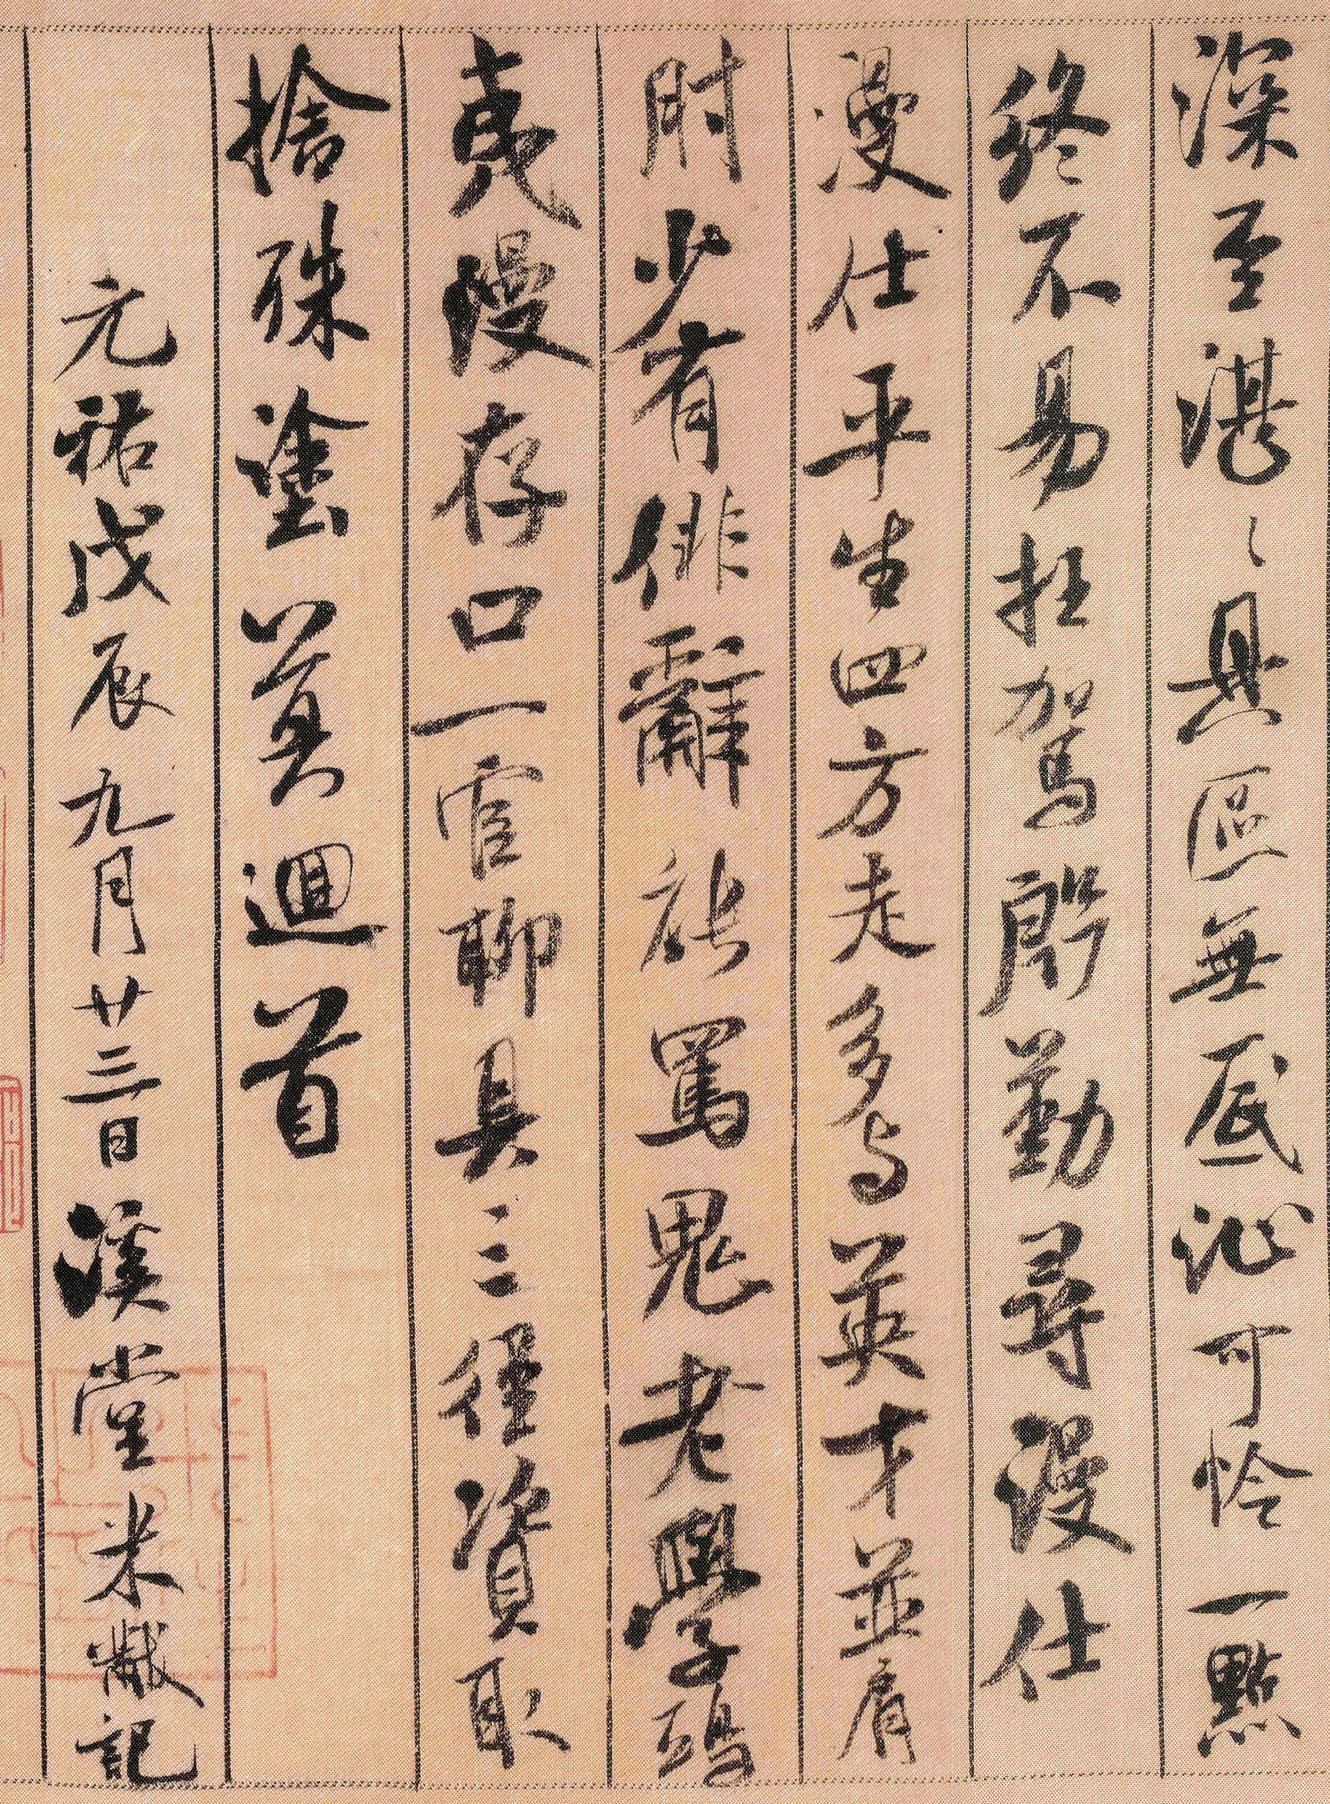 深至湛〻具區無底沚可憐一點
終不易枉駕殷勤尋漫仕
漫仕平生四方走多与英才並肩
肘少有俳辭能罵鬼老學鴟
夷漫存口一官聊具三徑資取
捨殊塗莫迴首
元祐戊辰九月廿三日溪堂米黻記